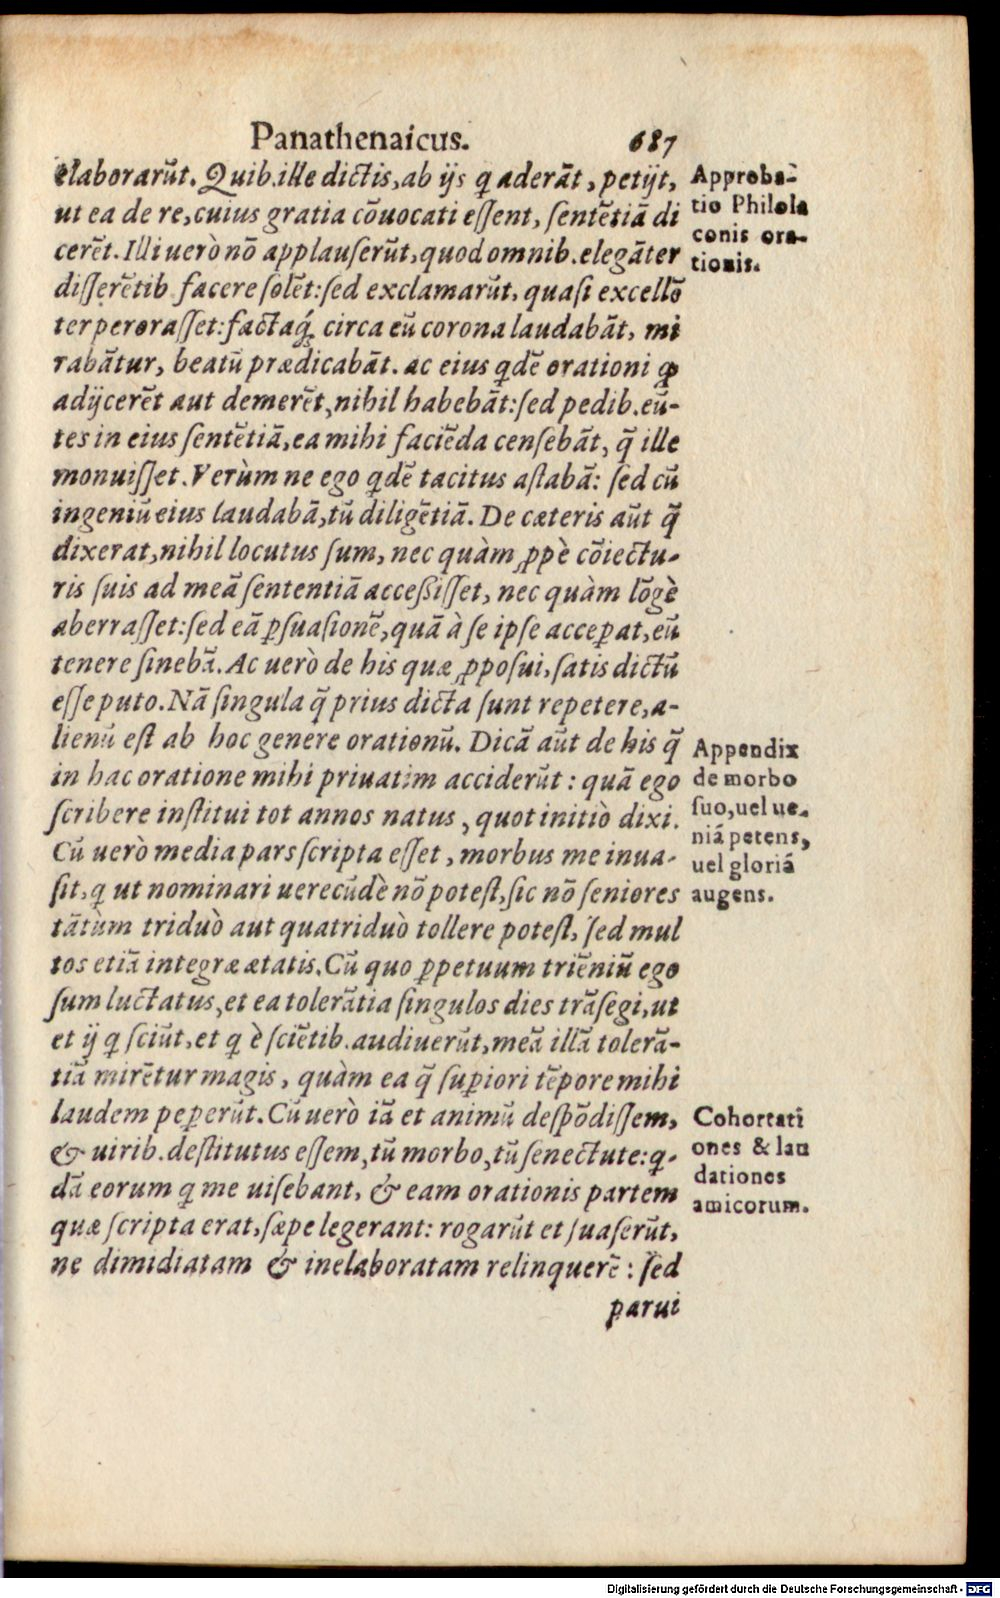 Panathenaicus. 687
elaborarūt. Quib. ille dictis, ab ijs q aderāt, petijt,
ut ea de re, cuius gratia cōuocati eſſent, ſentētiā di
cerēt. Illi uerò nō applauſerūt, quod omnib. elegāter
diſſerētib facere ſolēt: ſed exclamarūt, quaſi excellē
ter peroraſſet: factaq́; circa eū corona laudabāt, mi
rabātur, beatū prædicabāt. ac eius qdē orationi ꝙ
adijcerēt aut demerēt, nihil habebāt: ſed pedib. eū-
tes in eius ſentētiā, ea mihi faciēda cenſebāt, q̄ ille
monuiſſet. Verùm ne ego qdē tacitus aſtabā: ſed cū
ingeniū eius laudabā, tū diligētiā. De cæteris aūt q̄
dixerat, nihil locutus ſum, nec quàm ꝓpè cōiectu-
ris ſuis ad meā ſententiā acceßiſſet, nec quàm lōgè
aberraſſet: ſed eā ꝑſuaſionē, quā à ſe ipſe acceꝑat, eū
tenere ſinebā. Ac uerò de his quæ ꝓpoſui, ſatis dictū
eſſe puto. Nā ſingula q̄ prius dicta ſunt repetere, a-
lienū eſt ab hoc genere orationū. Dicā aūt de his q̄
in hac oratione mihi priuatim acciderūt: quā ego
ſcribere inſtitui tot annos natus, quot initiò dixi.
Cū uerò media pars ſcripta eſſet, morbus me inua-
ſit, q ut nominari uerecūdè nō poteſt, ſic nō ſeniores
tātùm triduò aut quatriduò tollere poteſt, ſed mul
tos etiā integræ ætatis. Cū quo ꝑpetuum triēniū ego
ſum luctatus, et ea tolerātia ſingulos dies trāſegi, ut
et ij q ſciūt, et q è ſciētib. audiuerūt, meā illā tolerā-
tiā mirētur magis, quàm ea q̄ ſuꝑiori tēpore mihi
laudem peꝑerūt. Cū uerò iā et animū deſpōdiſſem,
& uirib. deſtitutus eſſem, tū morbo, tū ſenectute: q-
dā eorum q me uiſebant, & eam orationis partem
quæ ſcripta erat, ſæpe legerant: rogarūt et ſuaſerūt,
ne dimidiatam & inelaboratam relinquerē: ſed
parui
Approba-
tio Philola
conis ora-
tionis.
Appendix
de morbo
ſuo, uel ue-
niā petens,
uel gloriā
augens.
Cohortati
ones & lau
dationes
amicorum.
Digitalisierung gefördert durch die Deutsche Forschungsgemeinschaft - DFG